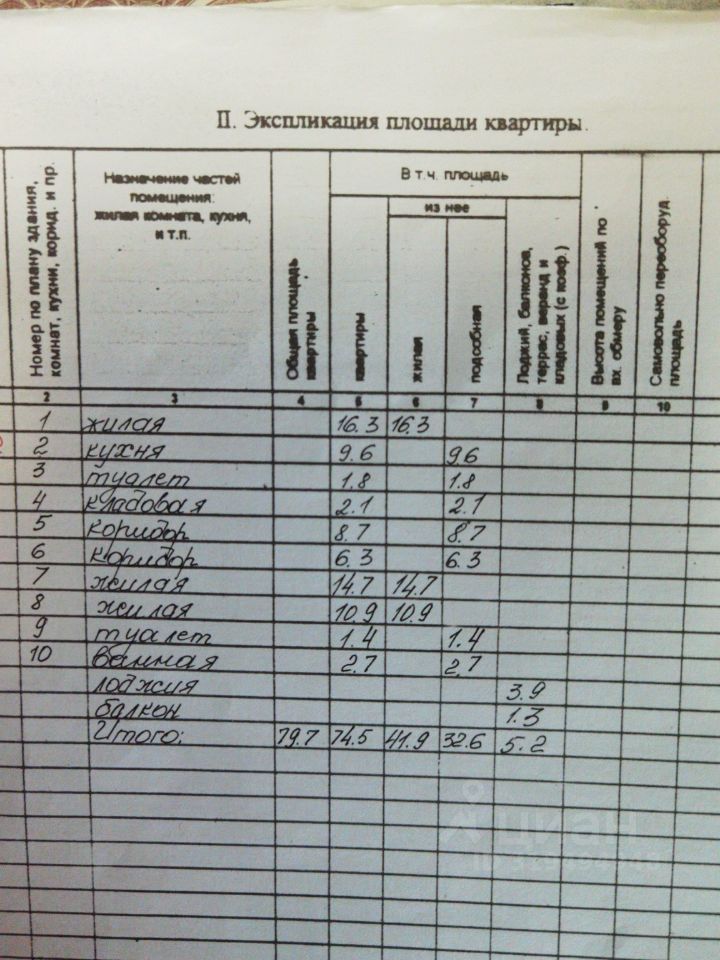 II. Экспликация площади квартиры.
Номер по плану здания, комнат, кухни, корид. и пр.
Назначение частей
помещения:
жилая комната, кухня,
и т.п.
Общая площадь квартиры
В т.ч. площадь
из нее
квартиры
жилая
подсобная
Лоджий, балконов, террас, веранд и кладовых (с коэф.)
Высота помещений по вн. обмеру
Самовольно переоборуд. площадь
2 3 4 5 6 7 8 9 10
1 жилая 16.3 16.3
2 кухня 9.6 9.6
3 туалет 1.8 1.8
4 кладовая 2.1 2.1
5 коридор 8.7 8.7
6 коридор 6.3 6.3
7 жилая 14.7 14.7
8 жилая 10.9 10.9
9 туалет 1.4 1.4
10 ванная 2.7 2.7
лоджия 3.9
балкон 1.3
Итого: 79.7 74.5 41.9 32.6 5.2
циан